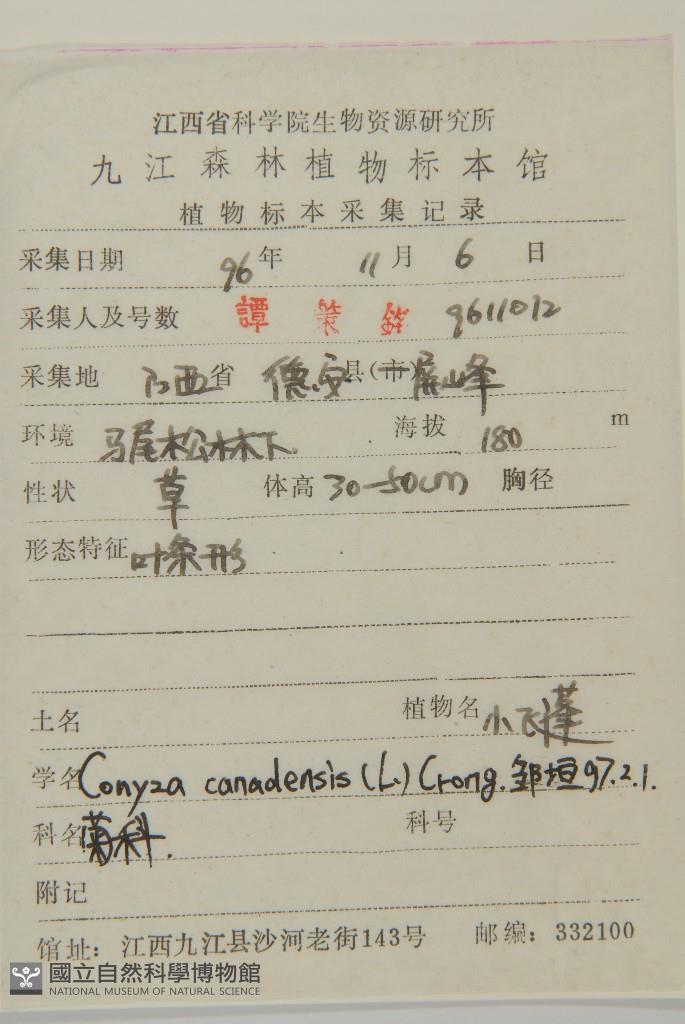 江西省科学院生物资源研究所
九江森林植物标本馆
植物标本采集记录
采集日期 96年 11月 6 日
采集人及号数 譚策銘 9611012
采集地 江西省 德安县(市) 屏峰
环境 马尾松林下 海拔 180 m
性状 草 体高 30-50cm 胸径
形态特征 叶条形
土名 植物名 小飞蓬
学名 Conyza canadensis (L.) Cronq. 邹垣 97.2.1.
科名 菊科. 科号
附记
馆址: 江西九江县沙河老街143号 邮编: 332100
國立自然科學博物館
NATIONAL MUSEUM OF NATURAL SCIENCE